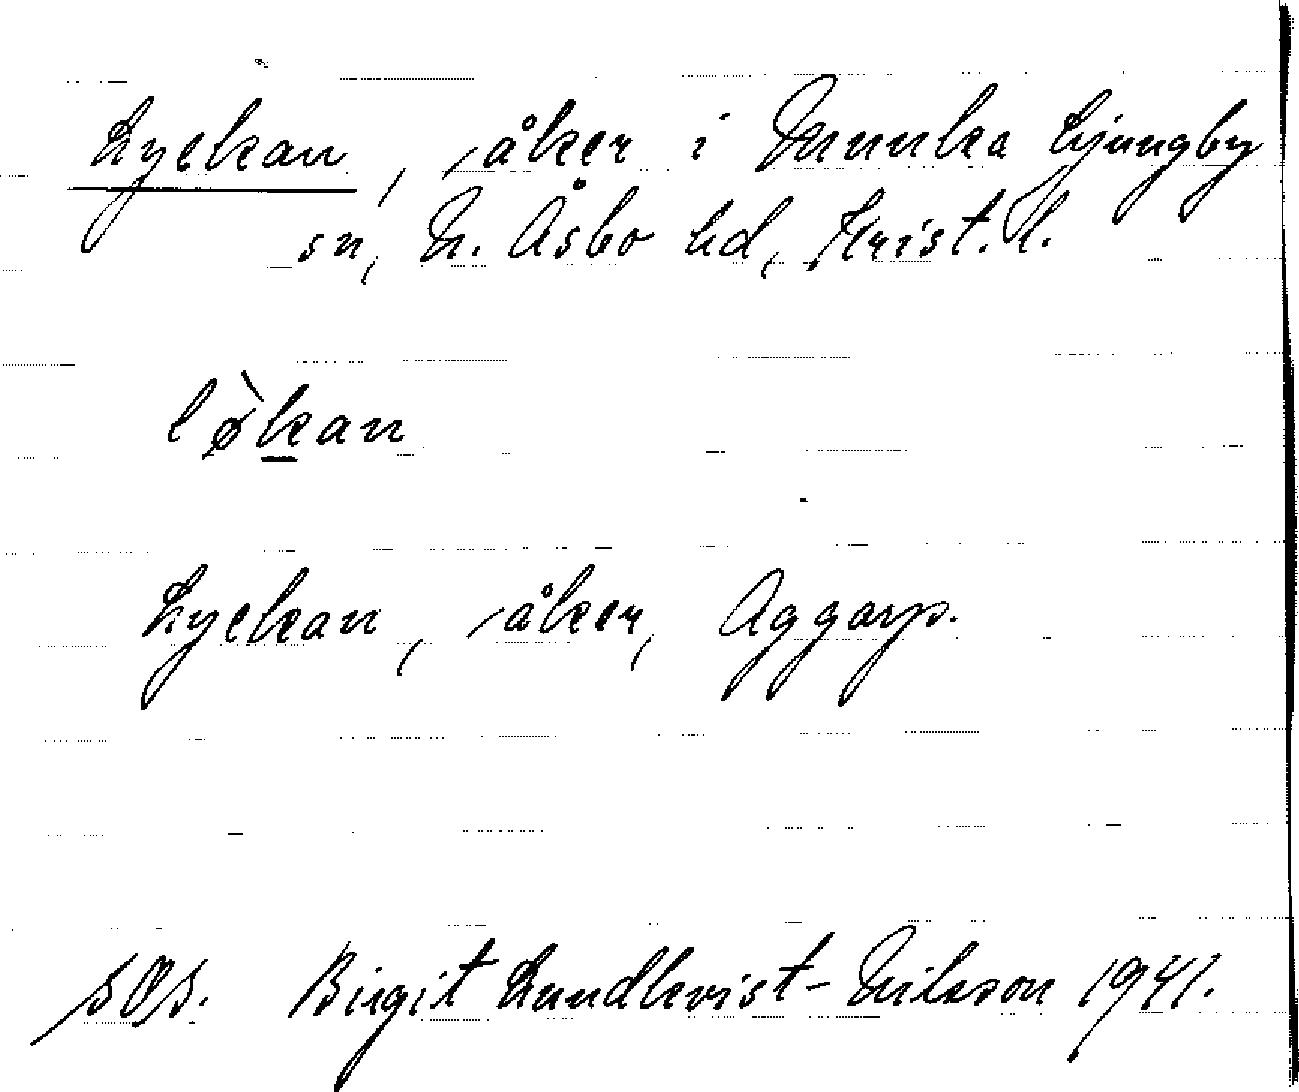 Lyckan, åker i Munka Ljungby
sn, N. Åsbo hd, Krist. l.
lø̀kan
Lyckan, åker, Aggarp.
Birgit Lundkvist-Nilsson 1941.